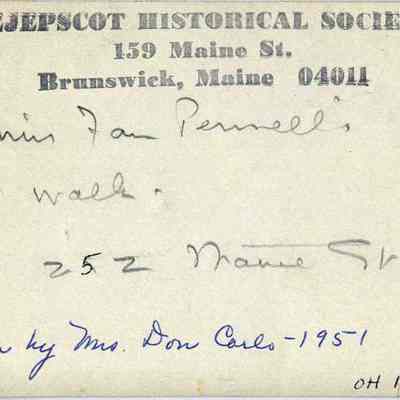 EJEPSCOT HISTORICAL SOCIE
159 Maine St.
Brunswick, Maine 04011
Fan Pennell's
walk.
252 Maine St
by Mrs. Don Carlo - 1951
OH 1